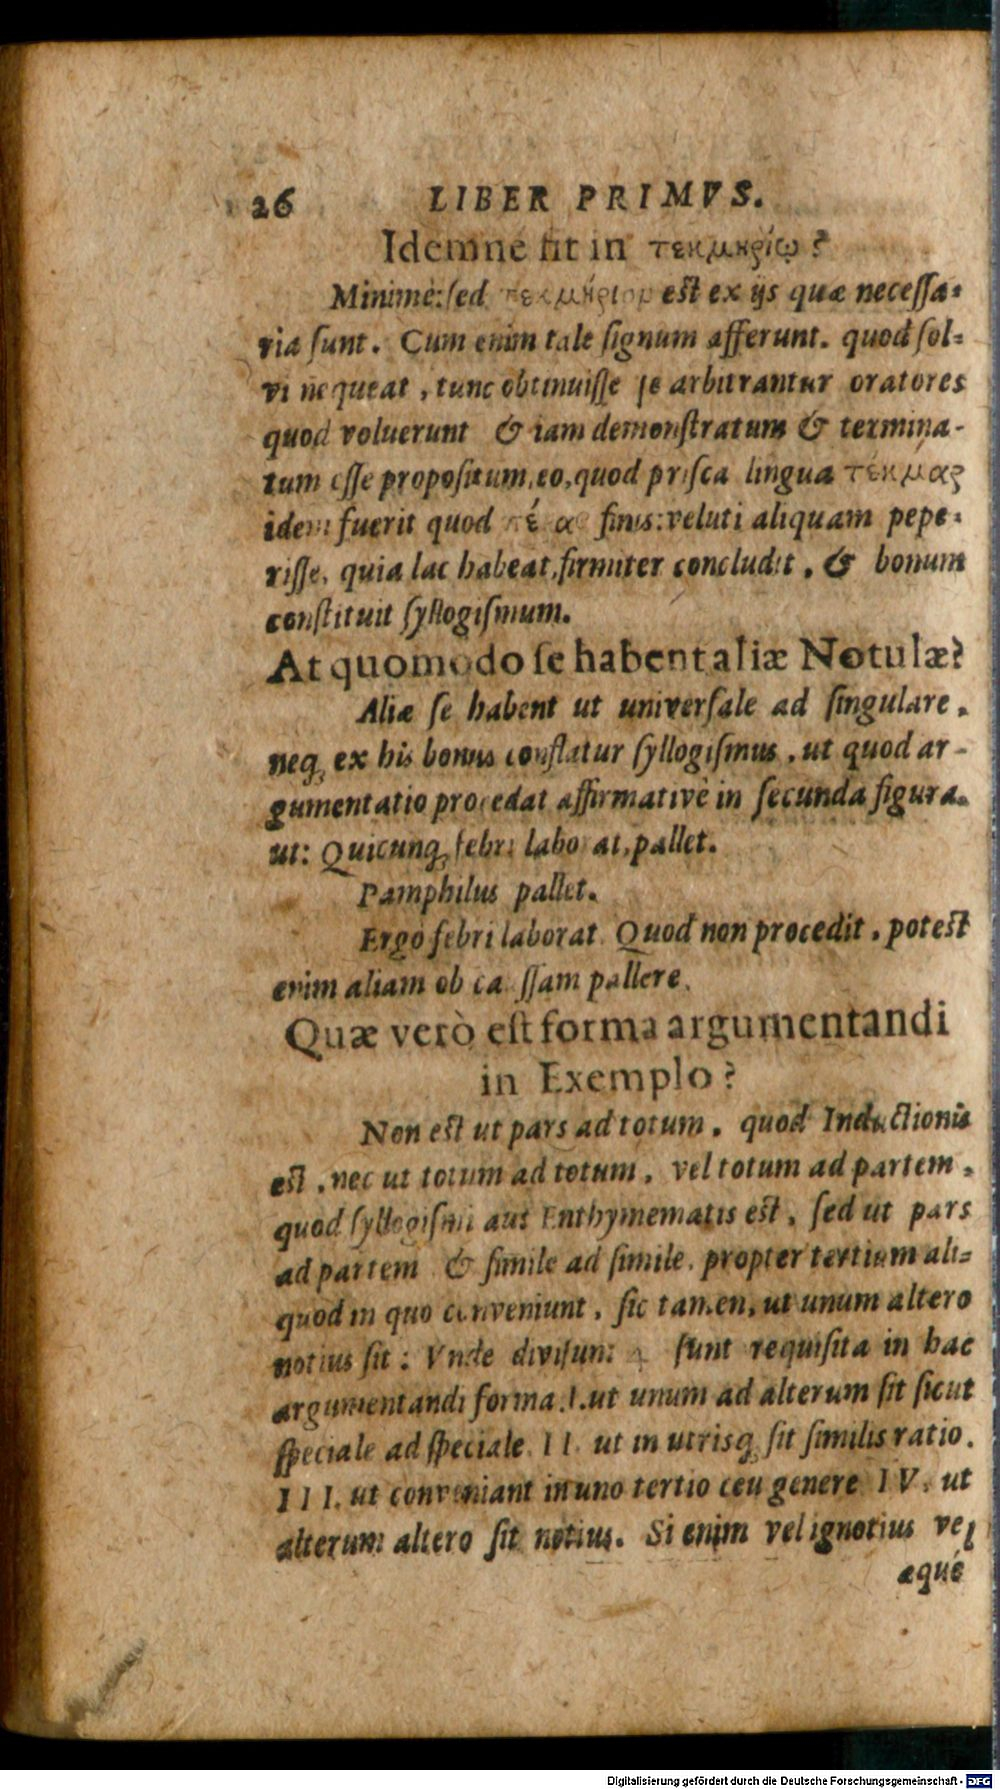 26 LIBER PRIMVS.
Idemne fit in τεκμηρίῳ?
Minimè: ſed τεκμήριον est ex ijs quæ neceſſa-
ria ſunt. Cum enim tale ſignum afferunt, quod ſol-
vi nequeat, tunc obtinuiſſe ſe arbitrantur oratores
quod voluerunt & iam demonſtratum & termina-
tum eſſe propoſitum, eo, quod priſca lingua τέκμαρ
idem fuerit quod finis: veluti aliquam pepe-
riſſe, quia lac habeat, firmiter concludit, & bonum
conſtituit ſyllogiſmum.
At quomodo ſe habent aliæ Notulæ?
Aliæ ſe habent ut univerſale ad ſingulare,
neq; ex his bonus conflatur ſyllogiſmus, ut quod ar-
gumentatio procedat affirmativè in ſecunda figura.
ut: Quicunq; febri laborat, pallet.
Pamphilus pallet.
Ergo febri laborat. Quod non procedit, potest
enim aliam ob cauſſam pallere.
Quæ verò eſt forma argumentandi
in Exemplo?
Non est ut pars ad totum, quod Inductionis
est, nec ut totum ad totum, vel totum ad partem,
quod ſyllogiſmi aut Enthymematis est, ſed ut pars
ad partem & ſimile ad ſimile, propter tertium ali-
quod in quo conveniunt, ſic tamen, ut unum altero
notius ſit: Vnde diviſum: 4 ſunt requiſita in hac
argumentandi forma. I. ut unum ad alterum ſit ſicut
ſpeciale ad ſpeciale. II. ut in utrisq; ſit ſimilis ratio.
III. ut conveniant in uno tertio ceu genere IV. ut
alterum altero ſit notius. Si enim vel ignotius vel
æqué
Digitalisierung gefördert durch die Deutsche Forschungsgemeinschaft - DFG